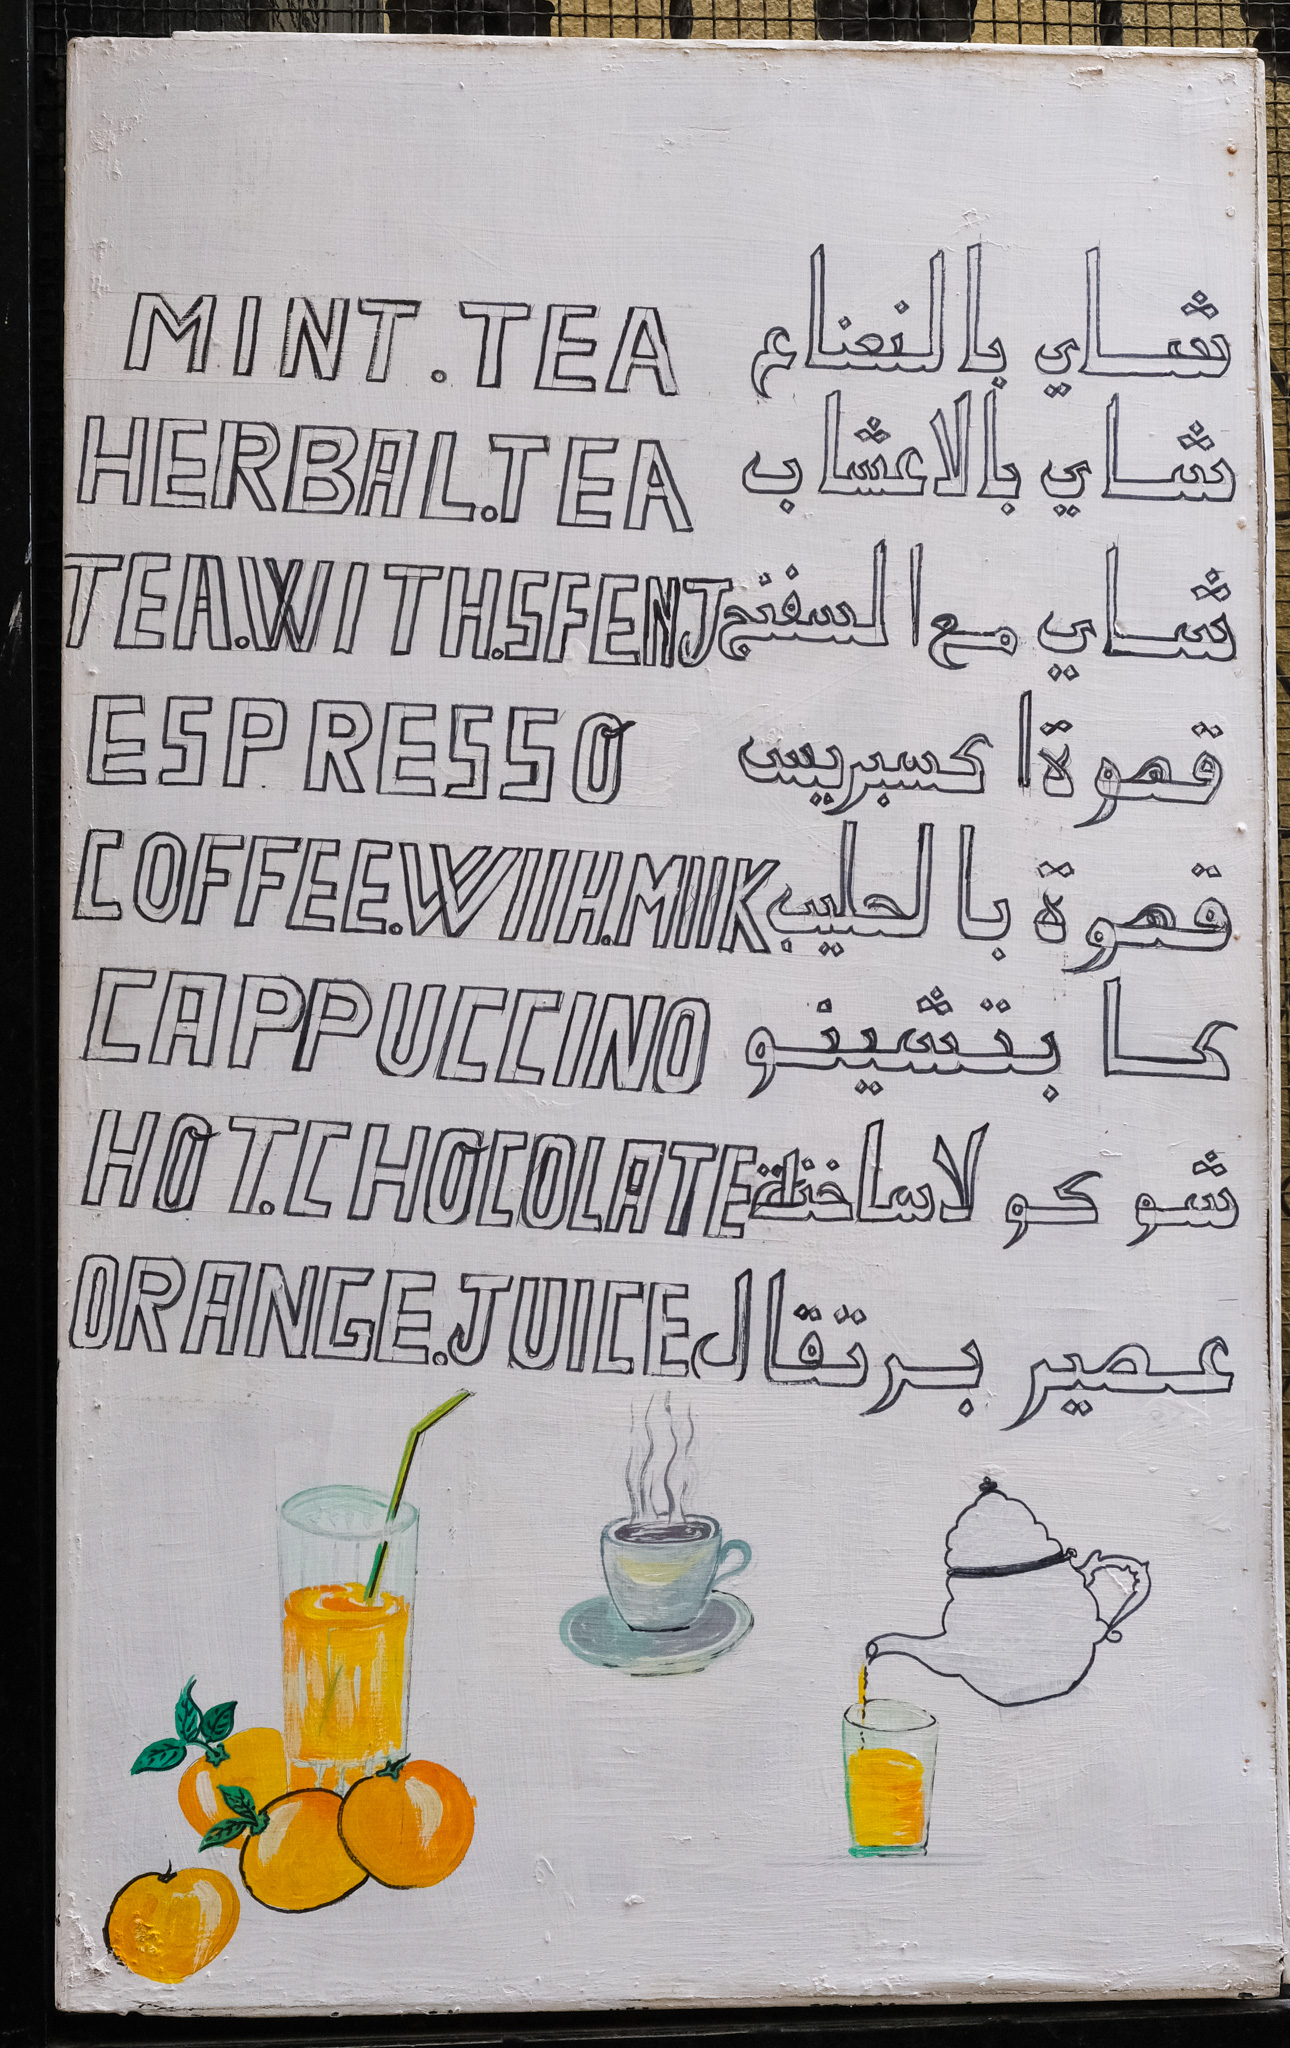 MINT.TEA شاي بالنعناع
HERBAL.TEA شاي بالاعشاب
TEA.WITH.SFENJ شاي مع السفنج
ESPRESSO قهوة اكسبريس
COFFEE.WIIH.MIIK قهوة بالحليب
CAPPUCCINO كابتشينو
HOT.CHOCOLATE شوكولاساخنة
ORANGE.JUICE عصير برتقال